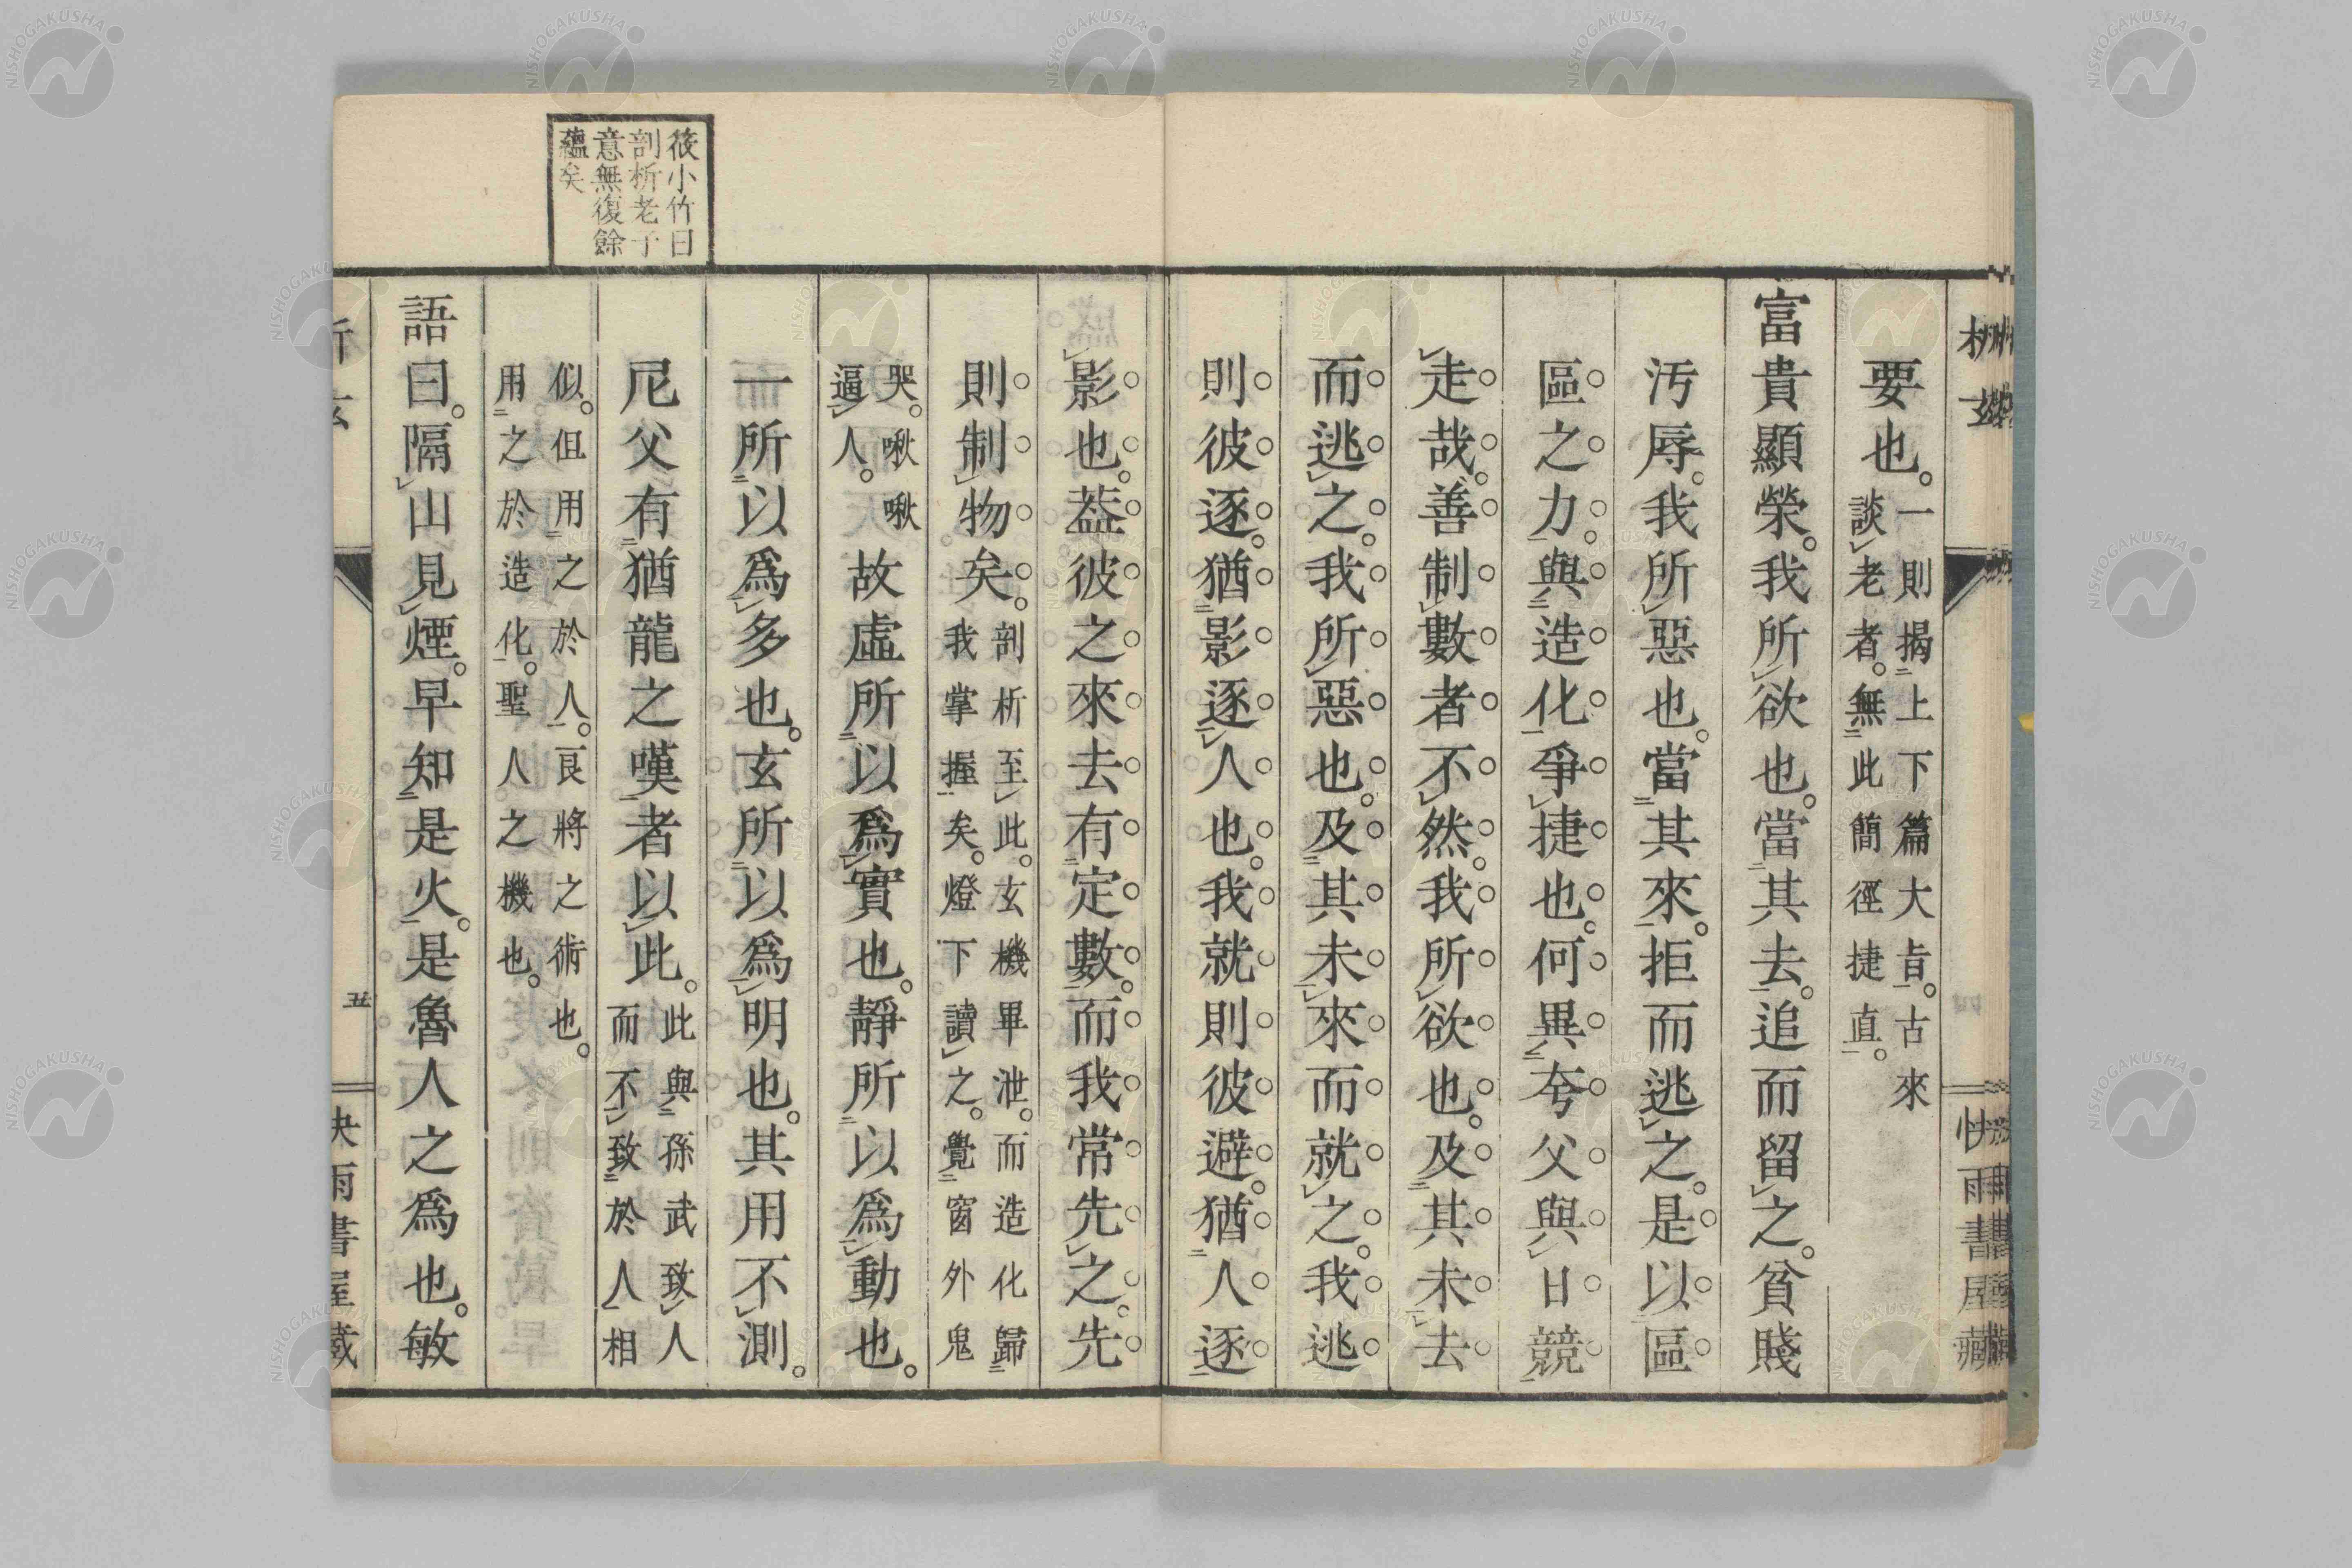 析玄
快雨書屋藏
要也。一則揭上下篇大旨。古來
談老者。無此簡徑捷直。
富貴顯榮。我所欲也。當其去。追而留之。貧賤
汚辱。我所惡也。當其來。拒而逃之。是以區
區之力。與造化爭捷也。何異夸父與日競
走哉。善制數者不然。我所欲也。及其未去
而逃之。我所惡也。及其未來而就之。我逃
則彼逐。猶影逐人也。我就則彼避。猶人逐
影也。葢彼之來去有定數。而我常先之。先
則制物矣。剖析至此。玄機畢泄。而造化歸
我掌握矣。燈下讀之。覺窗外鬼
哭。啾啾
逼人。故虛所以爲實也。靜所以爲動也。
一所以爲多也。玄所以爲明也。其用不測。
尼父有猶龍之嘆者以此。此與孫武致人
而不致於人相
似。但用之於人。良將之術也。
用之於造化。聖人之機也。
語曰。隔山見煙。早知是火。是魯人之爲也。敏
筱小竹曰
剖析老子
意無復餘
蘊矣
析玄
五
快雨書屋藏
NISHOGAKUSHA